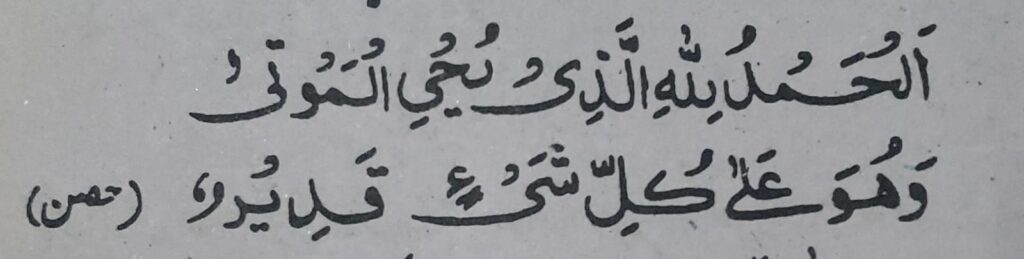 اَلْحَمْدُ لِلّٰهِ الَّذِیْ یُحْیِ الْمَوْتٰی
وَهُوَ عَلٰی کُلِّ شَیْءٍ قَدِیْرٌ (حصن)